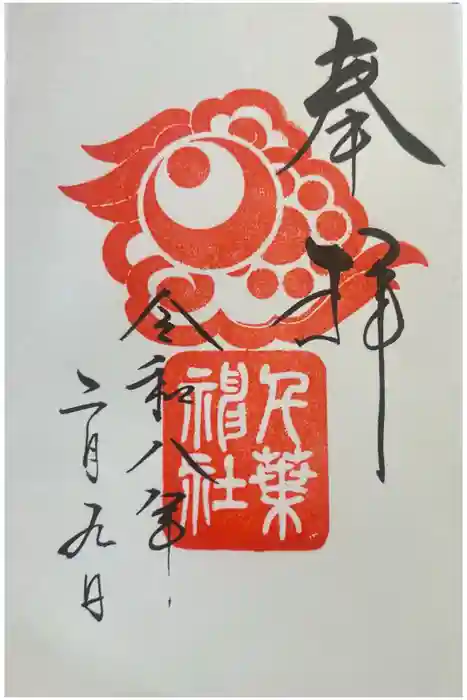 奉拝
千葉
神社
令和八年
二月九日